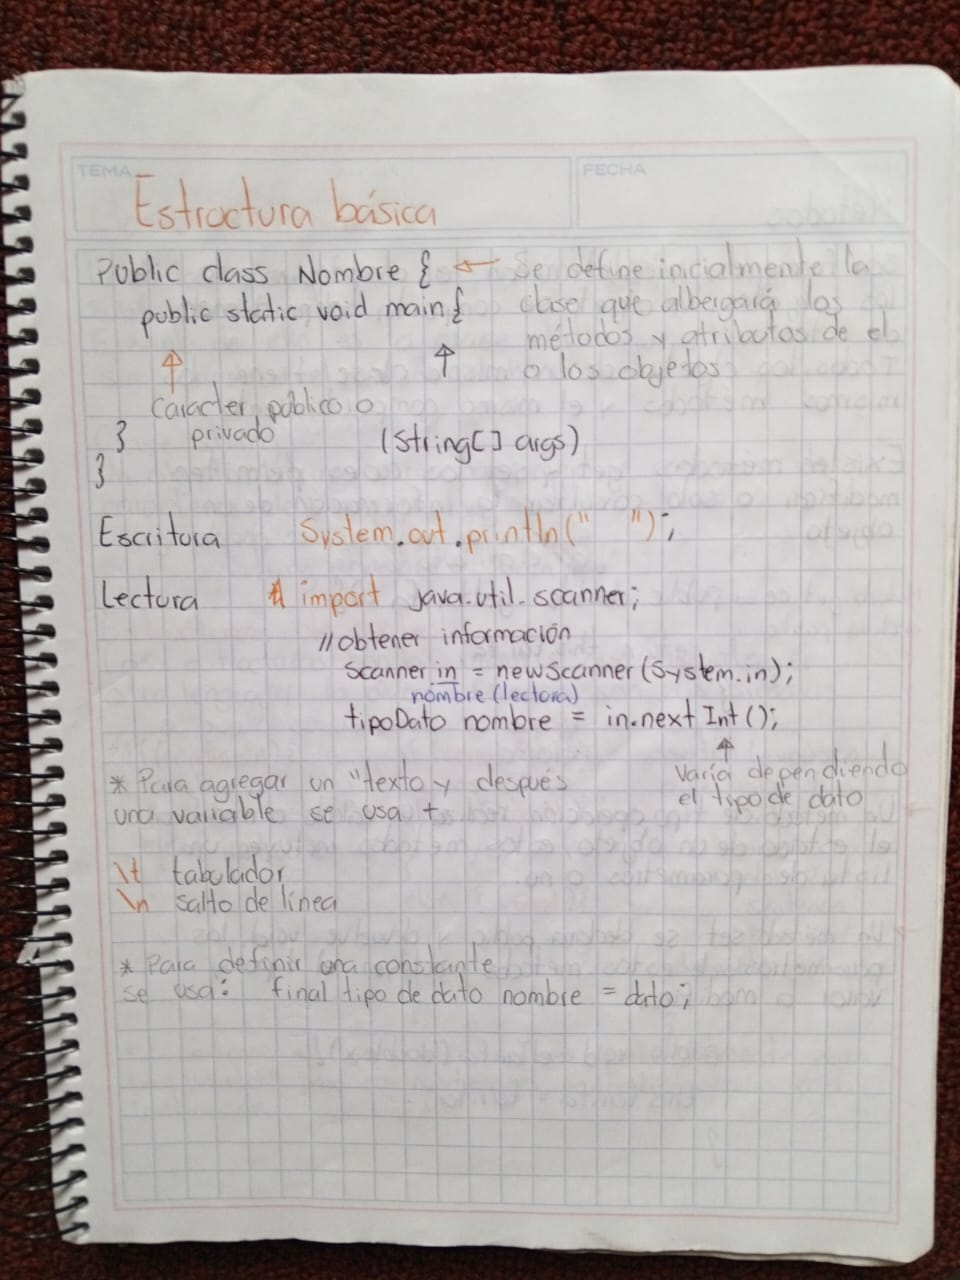 TEMA
FECHA
Estructura básica
Public class Nombre { ← Se define inicialmente la
public static void main{ clase que albergará los
métodos y atributos de el
o los objetos
↑ ↑
Caracter público o
privado
(String[] args)
}
}
Escritura System.out.println(" ");
Lectura import java.util.scanner;
//obtener información
Scanner in = newScanner(System.in);
nombre (lectora)
tipoDato nombre = in.nextInt();
↑
Varía dependiendo
el tipo de dato
* Para agregar un "texto y después
una variable se usa +
\t tabulador
\n salto de línea
* Para definir una constante
se usa: final tipo de dato nombre = dato;